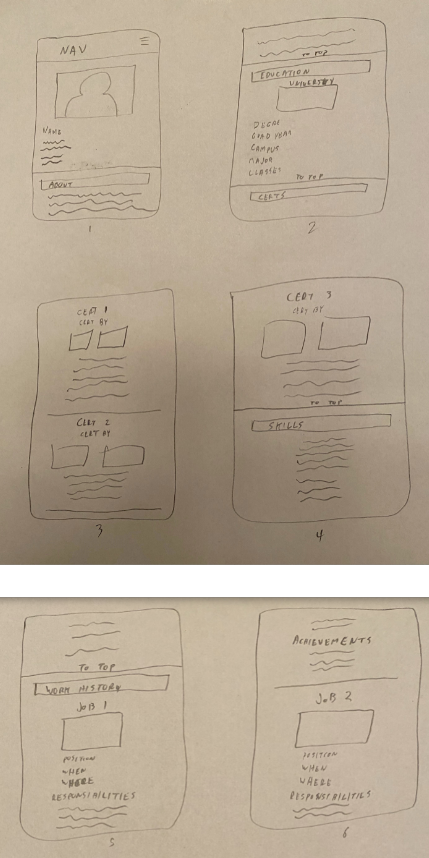 NAV
NAME
ABOUT
1
TO TOP
EDUCATION
UNIVERSITY
DEGREE
GRAD YEAR
CAMPUS
MAJOR
CLASSES
TO TOP
CERTS
2
CERT 1
CERT BY
CERT 2
CERT BY
3
CERT 3
CERT BY
TO TOP
SKILLS
4
TO TOP
WORK HISTORY
JOB 1
POSITION
WHEN
WHERE
RESPONSIBILITIES
5
ACHIEVEMENTS
JOB 2
POSITION
WHEN
WHERE
RESPONSIBILITIES
6